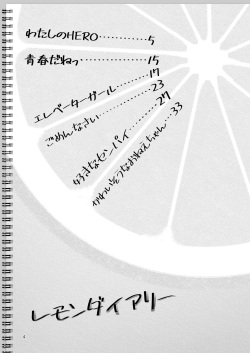 わたしのHERO…………5
青春だねっ……………15
エレベーターガール…………17
ごめんなさい…………23
好きなセンパイ…………27
かわいそうなおねえちゃん…33
レモンダイアリー